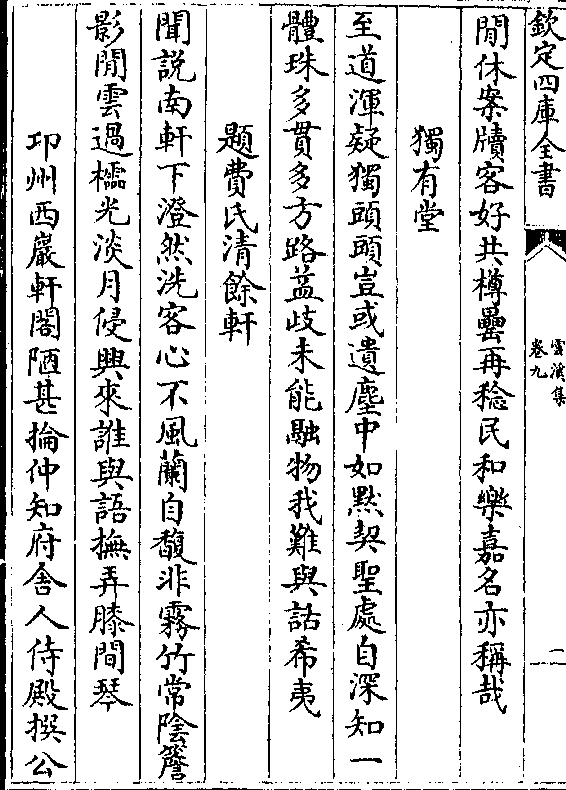 欽定四庫全書
雲溪集
卷九
二
閒休案牘客好共樽罍再稔民和樂嘉名亦稱哉
獨有堂
至道渾疑獨頭頭豈或遺塵中如默契聖處自深知一
體珠多貫多方路益歧未能融物我難與詁希夷
題費氏清餘軒
聞説南軒下澄然洗客心不風蘭自馥非霧竹常陰簷
影閒雲過櫺光淡月侵興來誰與語撫弄膝間琴
卭州西巖軒閣陋甚掄仲知府舍人侍殿撰公